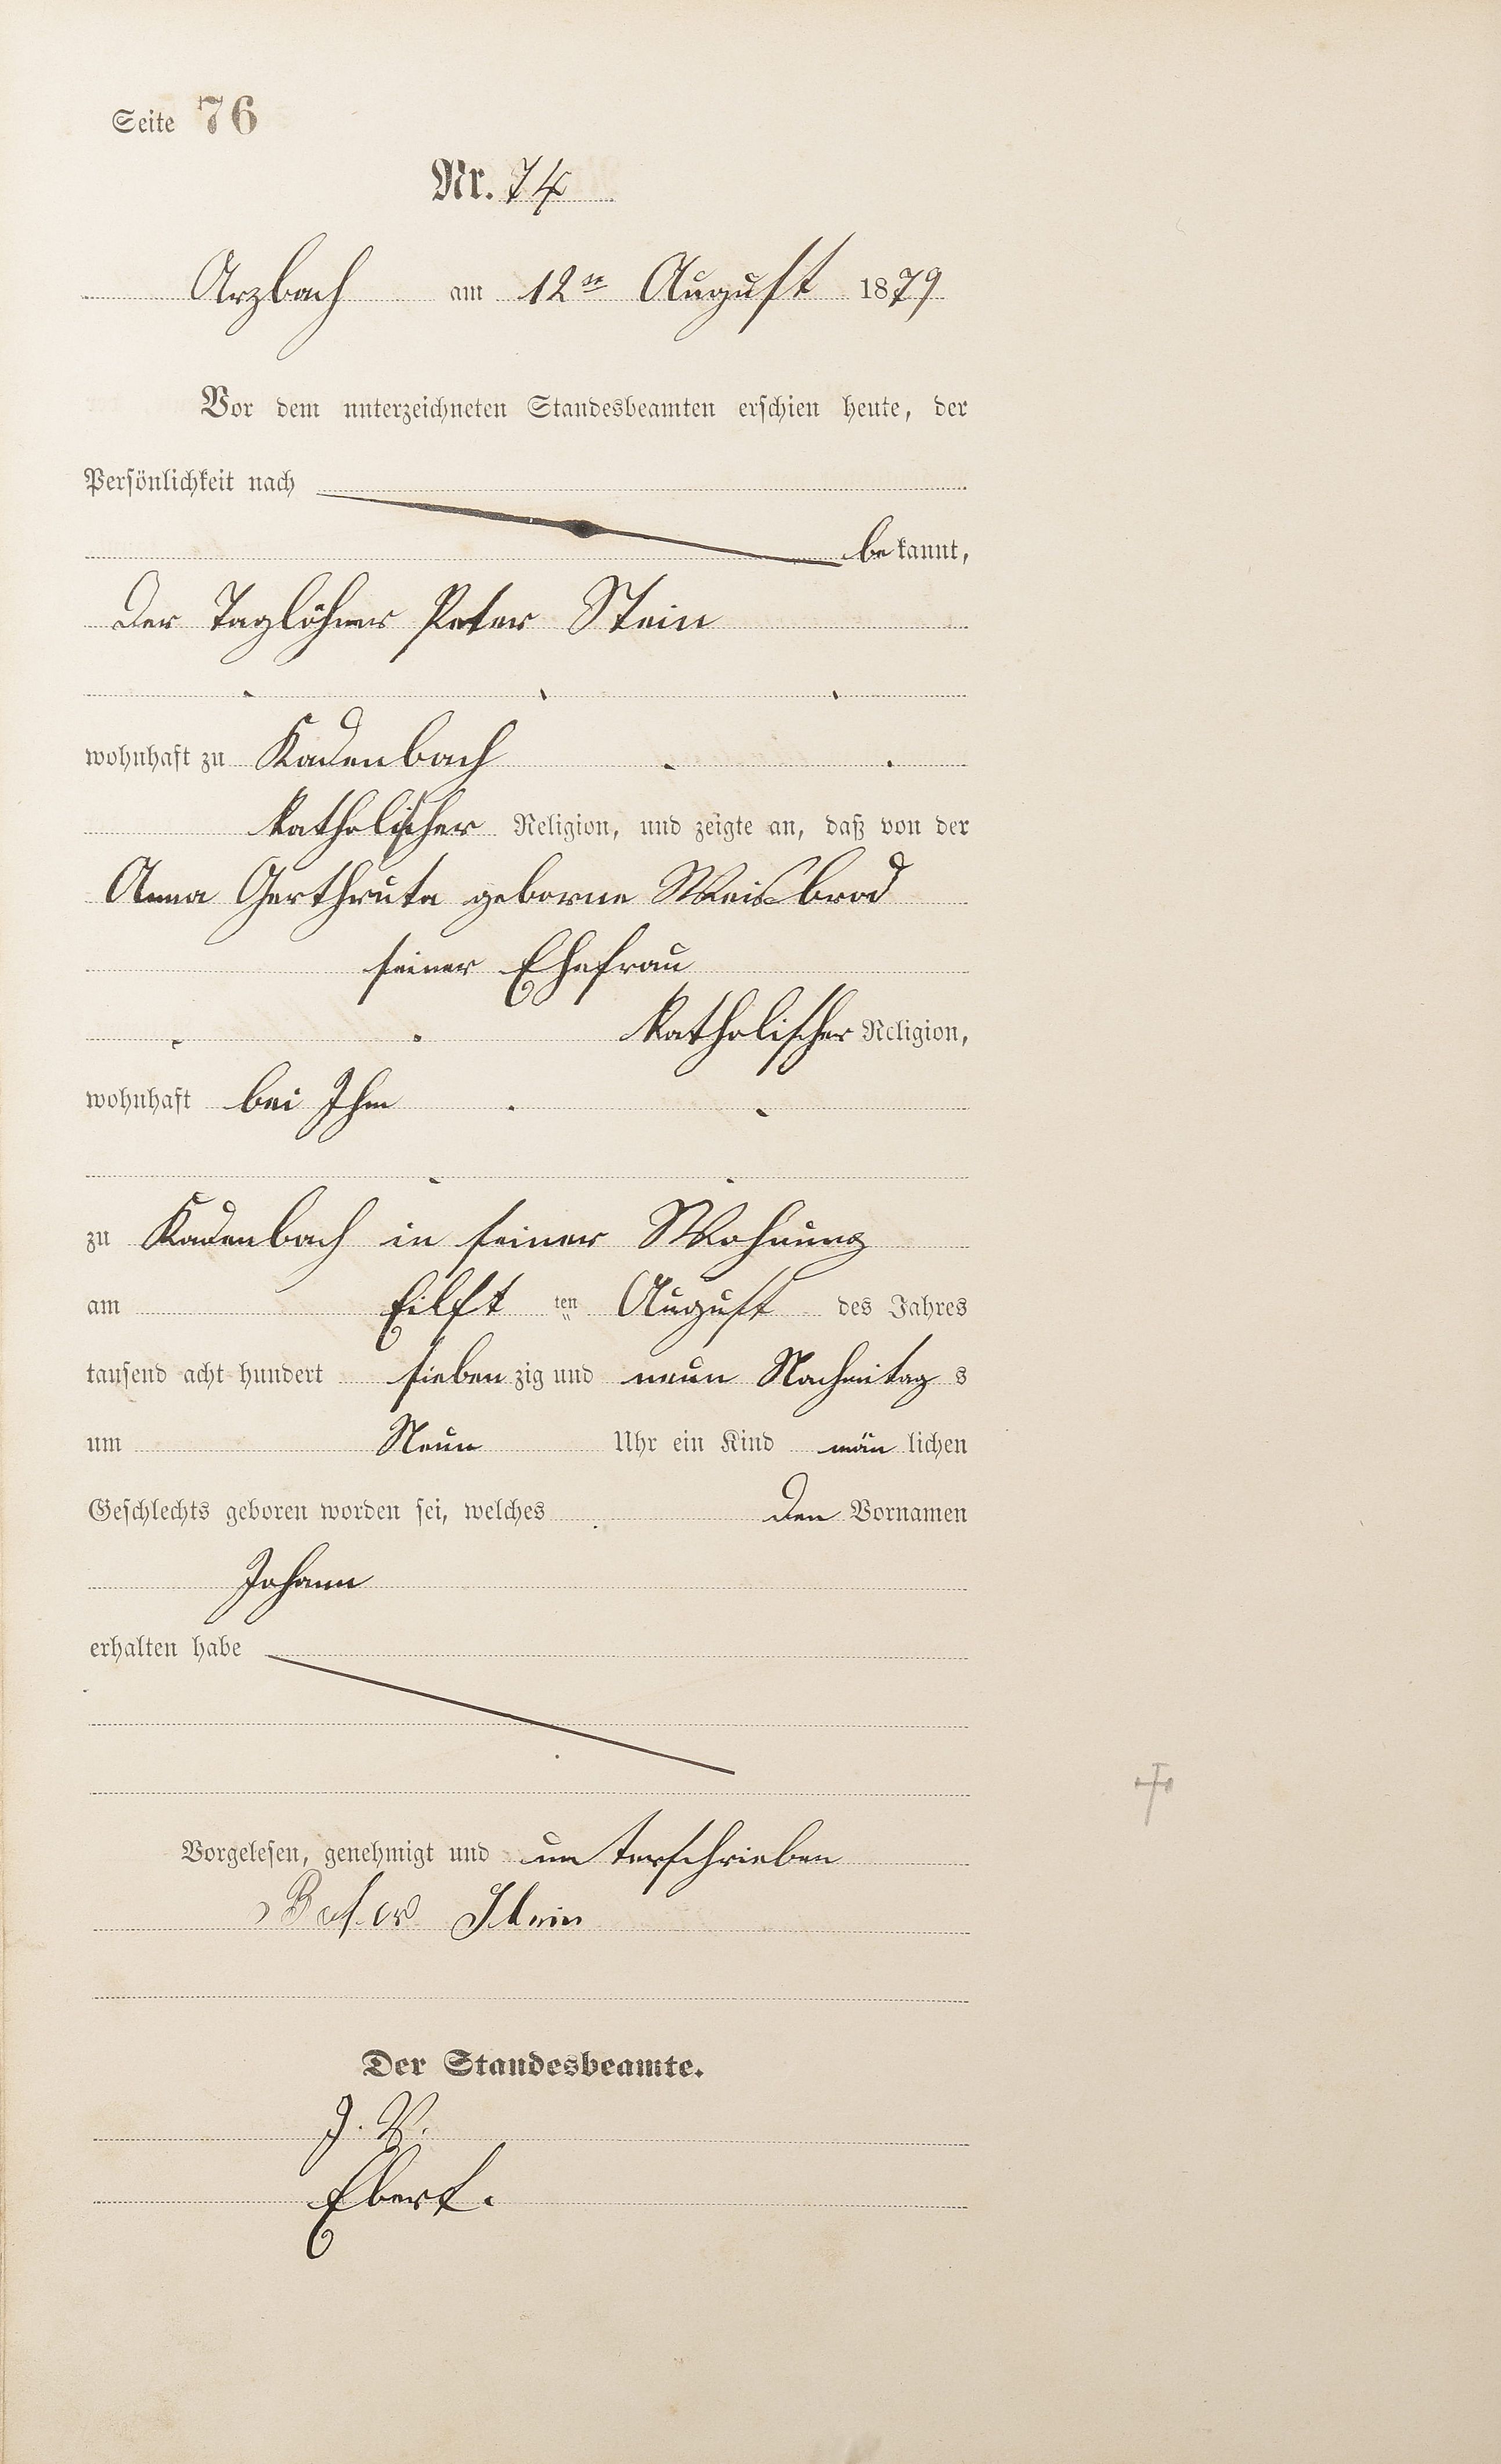 Seite 76
Nr. 74
Arzbach am 12ten August 1879
Vor dem unterzeichneten Standesbeamten erschien heute, der
Persönlichkeit nach
bekannt,
der Taglöhner Peter Stein
wohnhaft zu Kadenbach
katholischer Religion, und zeigte an, daß von der
Anna Gerthruta geborne Weisbrod
seiner Ehefrau
katholischer Religion,
wohnhaft bei Ihm
zu Kadenbach in seiner Wohnung
am Eilft ten August des Jahres
tausend acht hundert siebenzig und neun Nachmitags
um Neun Uhr ein Kind mänlichen
Geschlechts geboren worden sei, welches den Vornamen
Johann
erhalten habe
Vorgelesen, genehmigt und unterschrieben
Peter Stein
Der Standesbeamte.
J. V.
Ebert.